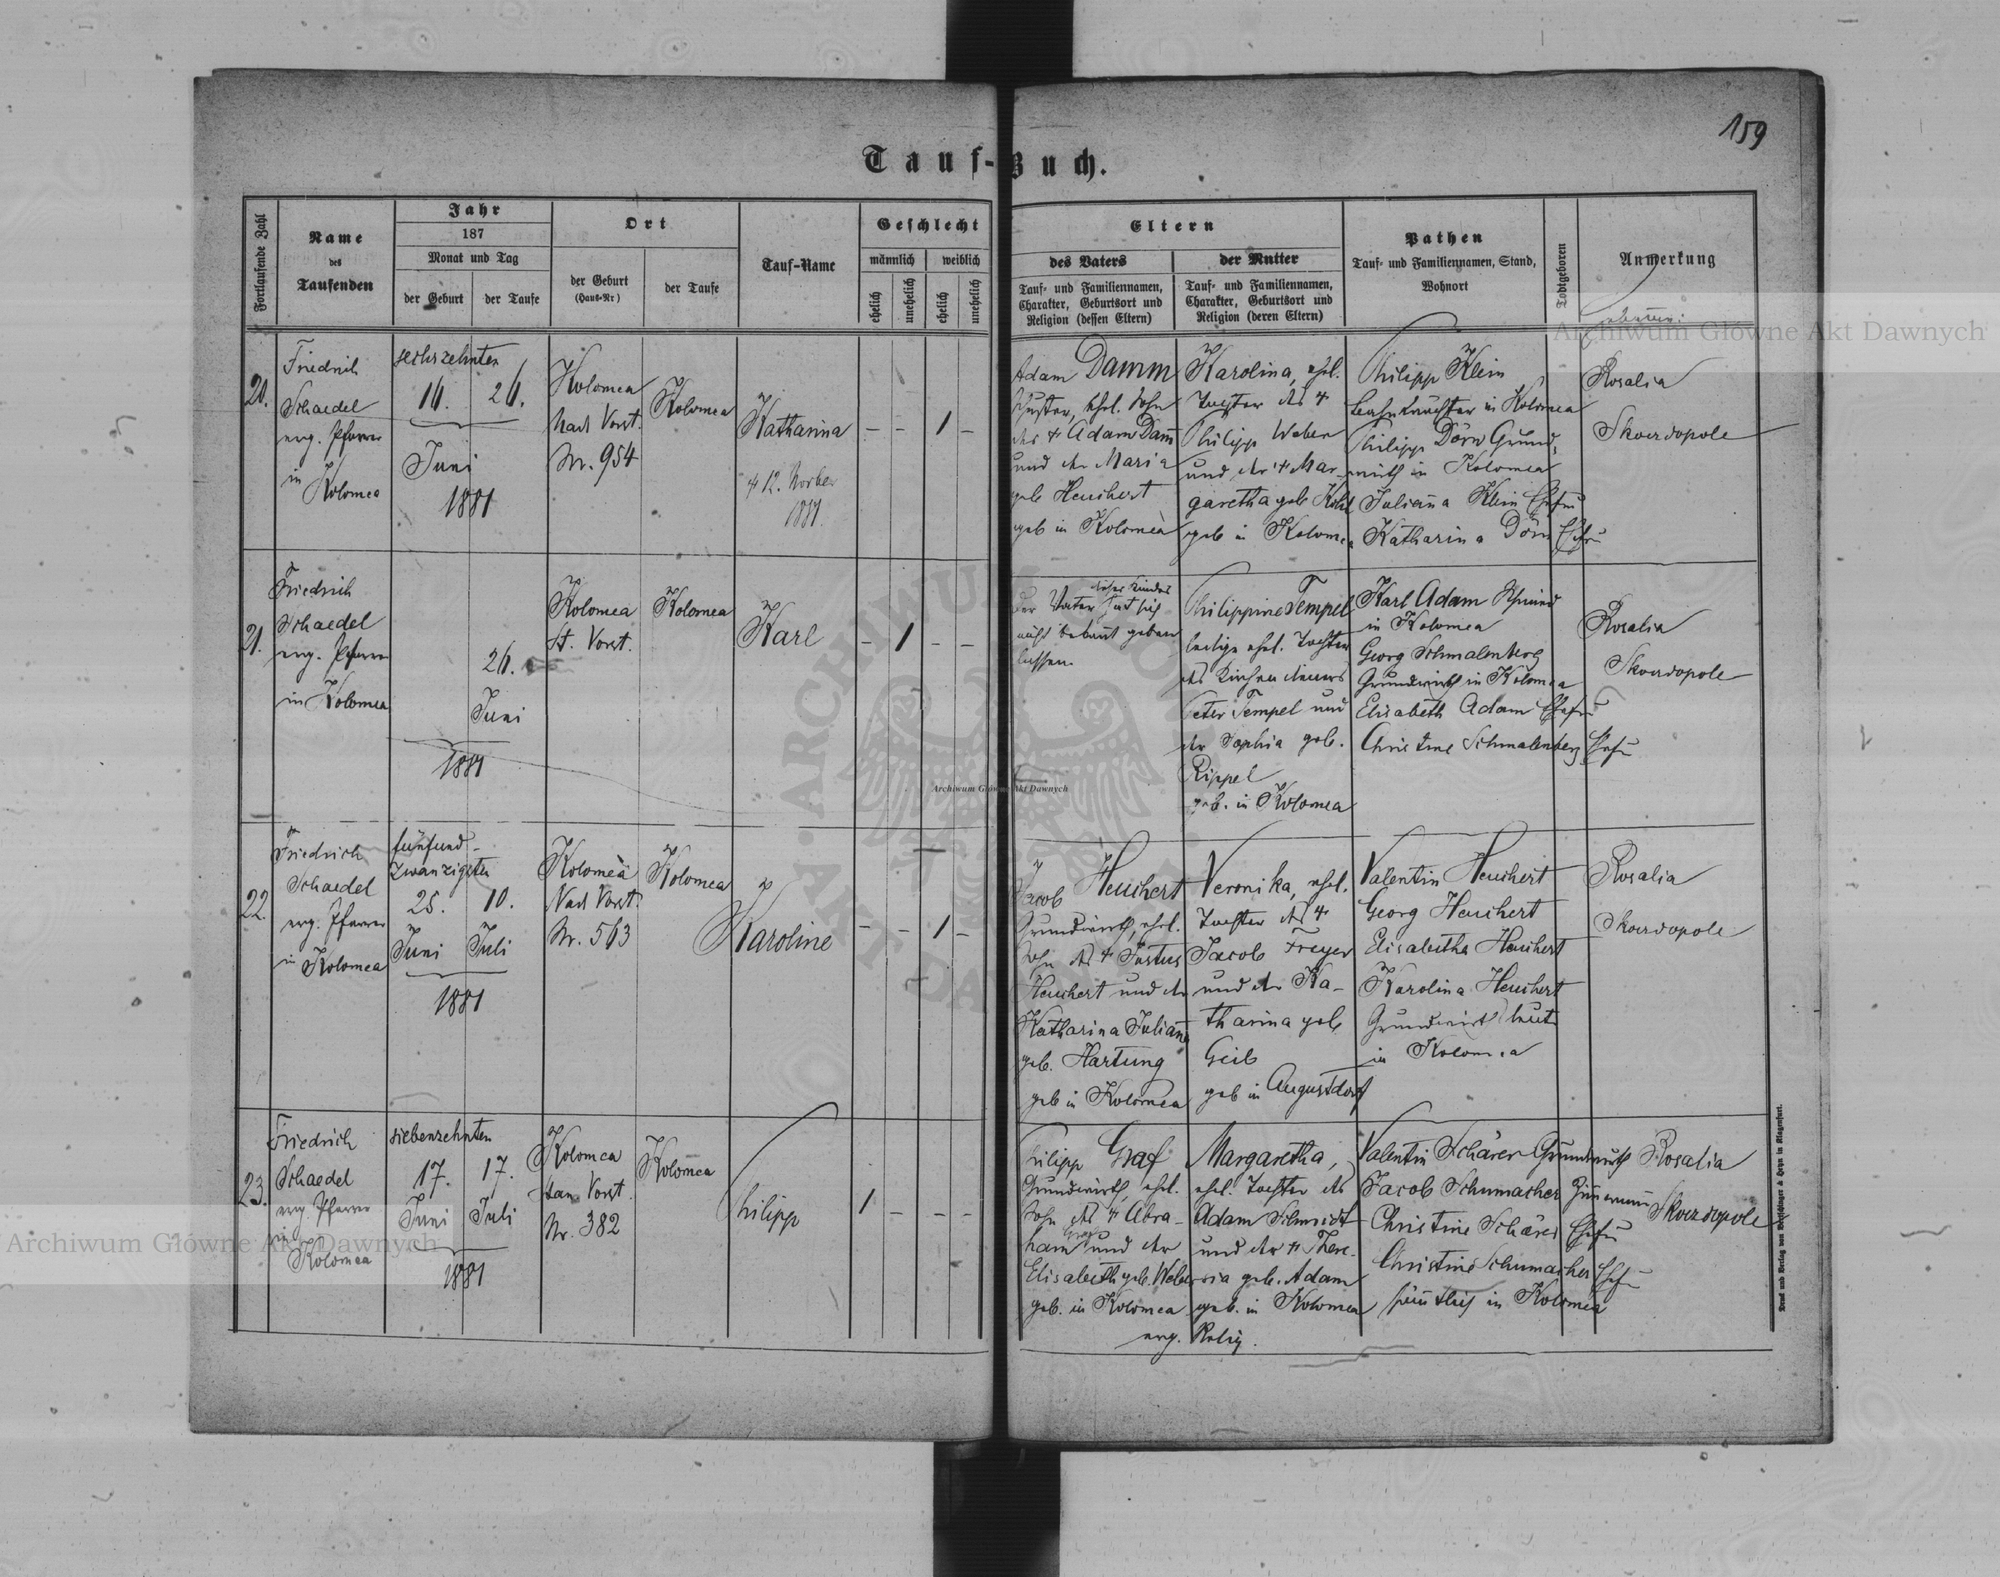 159
Tauf-Buch.
Fortlaufende Zahl
Name
des
Taufenden
Jahr
187
Monat und Tag
der Geburt
der Taufe
Ort
der Geburt
(Haus-Nr)
der Taufe
Tauf-Name
Geschlecht
männlich
weiblich
ehelich
unehelich
ehelich
unehelich
Eltern
des Vaters
Tauf- und Familiennamen,
Charakter, Geburtsort und
Religion (dessen Eltern)
der Mutter
Tauf- und Familiennamen,
Charakter, Geburtsort und
Religion (deren Eltern)
Pathen
Tauf- und Familiennamen, Stand,
Wohnort
Todtgeboren
Anmerkung
20.
Friedrich
Schaedel
evg. Pfarrer
in
Kolomea
sechszehnten
16. 26.
Juni
1881
Kolomea
Nad Vorst.
Nr. 954
Kolomea
Katharina
+ 12.
1881
– – 1 –
Adam Damm
Schuster, ehel. Sohn
des + Adam Dam̄
und der Maria
geb Heuchert
geb in Kolomea
Karolina, ehel.
Tochter des +
Philipp Weber
und der + Mar-
garetha geb
geb in Kolomea
Philipp Klein
Bahnwächter in Kolomea
Philipp Dörn Grund-
wirth in Kolomea
Julian̄a Klein Ehefrau
Katharina Dörn Ehefrau
Rosalia
Skowdopole
21.
Friedrich
Schaedel
evg. Pfarrer
in Kolomea
26.
Juni
1881
Kolomea
St. Vorst.
Kolomea
Karl
– 1 – –
Der Vater dieses Kindes hat sich
nicht bekannt geben
lassen.
Philippine Tempel
ledige ehel. Tochter
des Kirchendieners
Peter Tempel und
der Sophia geb.
Rippel
geb. in Kolomea
Karl Adam Schmied
in Kolomea
Georg Schmalenberg
Grundwirth in Kolomea
Elisabeth Adam Ehefrau
Christine Schmalenberg Ehefrau
Rosalia
Skowdopole
22.
Friedrich
Schaedel
evg. Pfarrer
in Kolomea
fünfund-
zwanzigsten
25. 10.
Juni Juli
1881
Kolomea
Nad Vorst.
Nr. 563
Kolomea
Karoline
– – 1 –
Jacob Heuchert
Grundwirth, ehel.
Sohn des + Justus
Heuchert und der
Katharina Julian̄a
geb. Hartung
geb in Kolomea
Veronika, ehel.
Tochter des +
Jacob Freyer
und der Ka-
tharina geb
Geib
geb in Augustdorf
Valentin Heuchert
Georg Heuchert
Elisabetha Heuchert
Karolina Heuchert
Grundwirthsleute
in Kolomea
Rosalia
Skowdopole
23.
Friedrich
Schaedel
evg. Pfarrer
in
Kolomea
siebenzehnten
17. 17.
Juni Juli
1881
Kolomea
Vorst.
Nr. 382
Kolomea
Philipp
1 – – –
Philipp Graf
Grundwirth, ehel.
Sohn des + Abra-
ham Graf und der
Elisabeth geb. Weber
geb. in Kolomea
Margaretha,
ehel. Tochter des
Adam Schmidt
und der + There-
sia geb. Adam
geb. in Kolomea
evg. Relig.
Valentin Schärer Grundwirth
Jacob Schumacher Zimmermann
Christine Schärer Ehefrau
Christine Schumacher Ehefrau
sämtlich in Kolomea
Rosalia
Skowdopole
Archiwum Główne Akt Dawnych
Archiwum Główne Akt Dawnych
Archiwum Główne Akt Dawnych